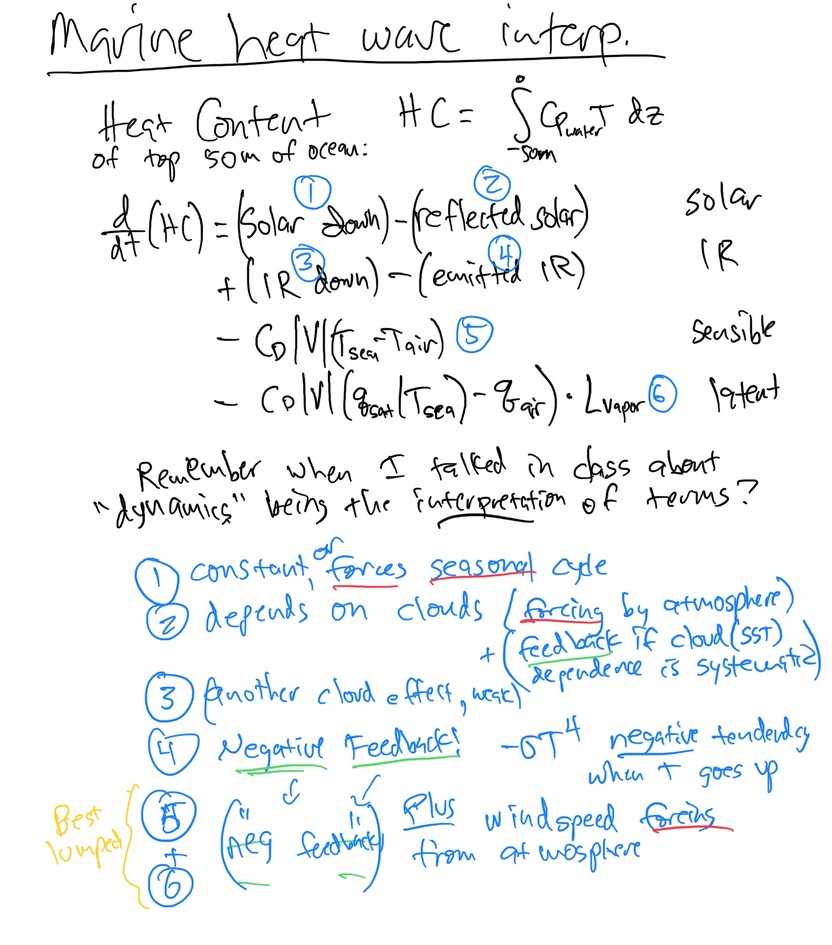 Marine heat wave interp.
Heat Content HC = ∫₋₅₀ₘ⁰ Cp_water T dz
of top 50m of ocean:
① ②
d/dt (HC) = (Solar down) - (reflected solar) solar
③ ④
+ (IR down) - (emitted IR) IR
- C_D |V| (T_sea - T_air) ⑤ sensible
- C_D |V| (q_sat(T_sea) - q_air) · L_vapor ⑥ latent
Remember when I talked in class about
"dynamics" being the interpretation of terms?
① constant, or forces seasonal cycle
② depends on clouds (forcing by atmosphere)
+ (feedback if cloud(SST)
dependence is systematic)
③ (another cloud effect, weak)
④ Negative Feedback! -σT⁴ negative tendency
when T goes up
Best lumped { ⑤ + ⑥ ("neg feedback") Plus windspeed forcing
from atmosphere